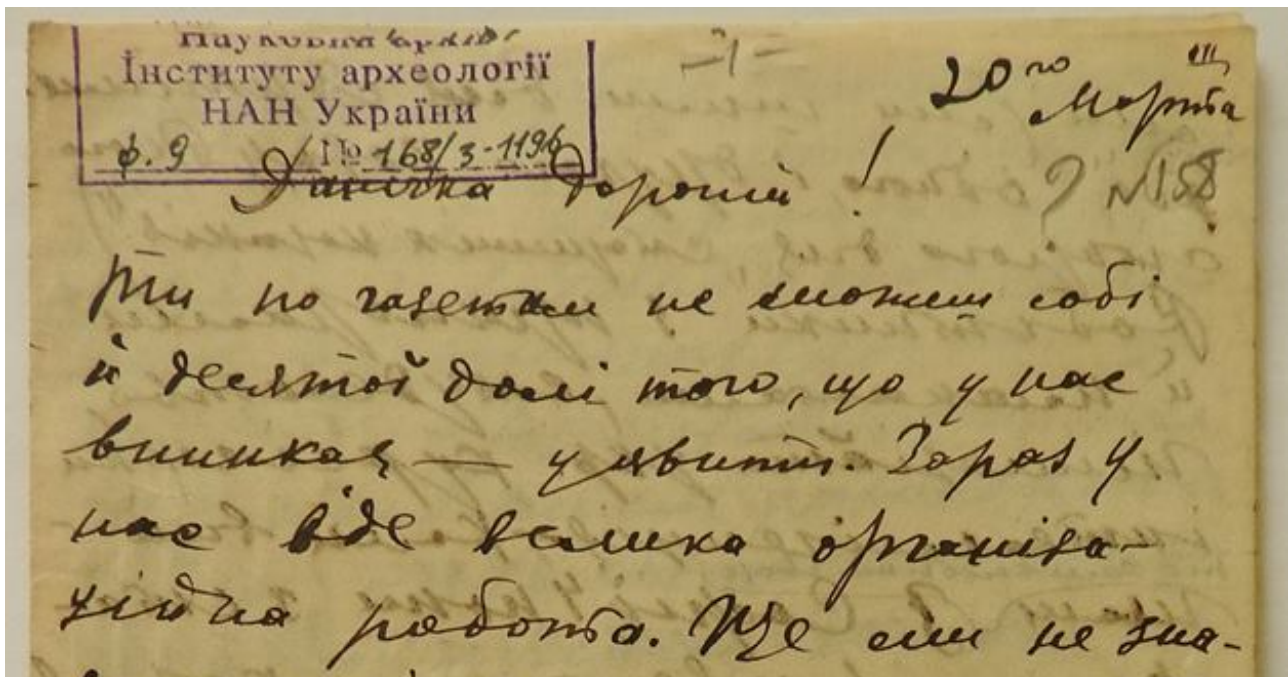 Науковий архів
Інституту археології
НАН України
ф. 9 № 168/3-1196
-1-
20го Марта
III
Данічка дорогий!
? №158
Ти по газеткам не можеш собі
й десятої долі того, що у нас
виникає — уявить. Зараз у
нас іде велика організа-
ційна работа. Ще ми не зна-